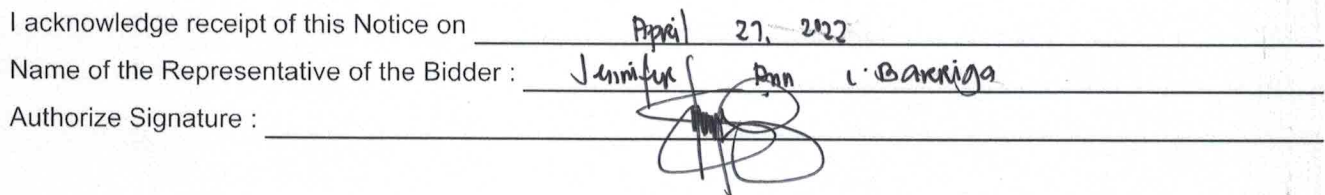 I acknowledge receipt of this Notice on April 27, 2022
Name of the Representative of the Bidder : Jennifer Ann L. Barriga
Authorize Signature :